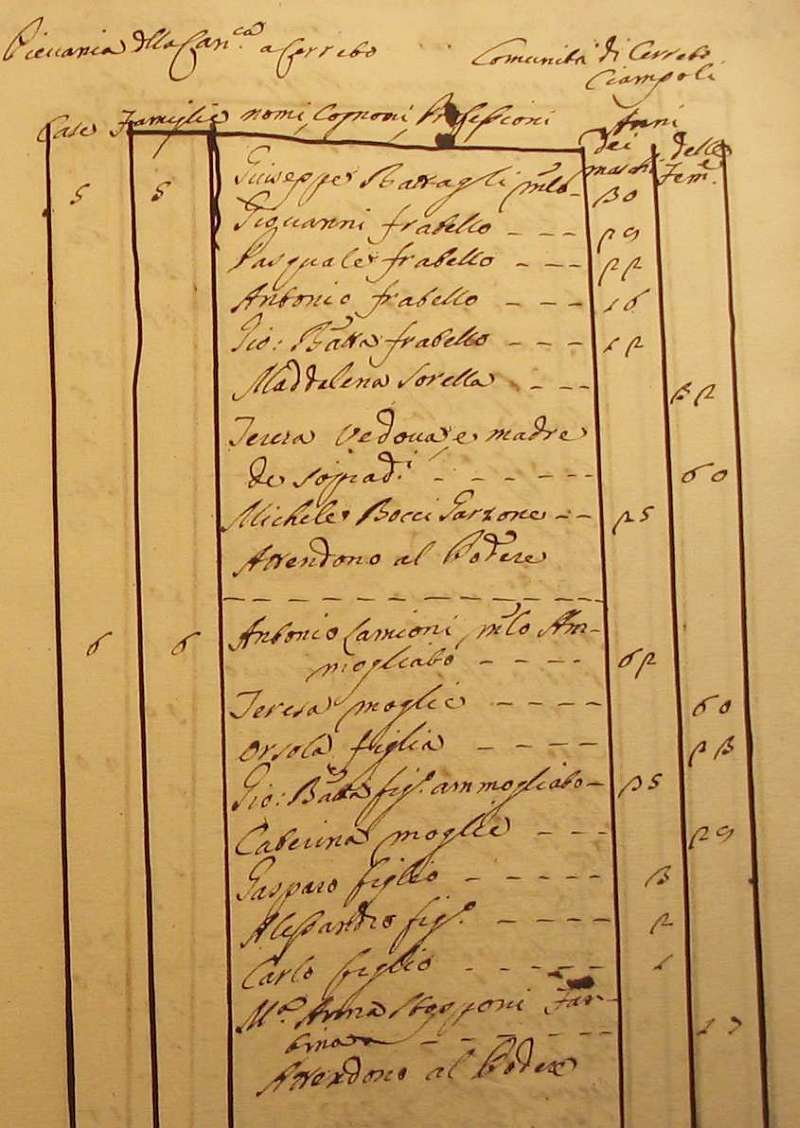 Pievania della Can.ca a Cerreto
Comunità di Cerreto
Ciampoli
Case Famiglie nomi, Cognomi, Professioni
Anni
dei maschi
delle Fem.e
5 5 Giuseppe Battagli 30
Giovanni fratello - - - 29
Pasquale fratello - - - 22
Antonio fratello - - - 16
Gio: Batta fratello - - - 12
Maddalena Sorella - - - 32
Teresa Vedova, e madre
de sop.ad.i - - - - - - 60
Michele Bocci Garzone - - 25
Attendono al Podere
6 6 Antonio Camioni Am-
mogliato - - - - 62
Teresa moglie - - - - - 60
Orsola figlia - - - - 23
Gio: Batta fig.o ammogliato - 35
Caterina moglie - - - 29
Gasparo figlio - - - - - 3
Alessandro fig.o - - - - 2
Carlo figlio - - - - - 1
M.a Anna
- - - - - - 17
Attendono al Podere